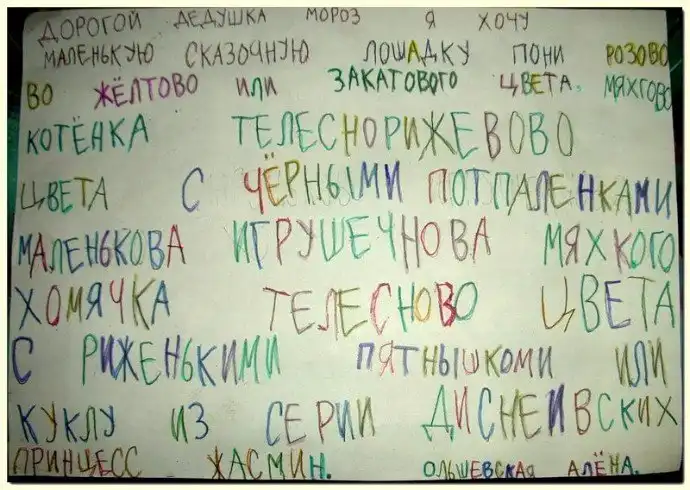 ДОРОГОЙ ДЕДУШКА МОРОЗ Я ХОЧУ
МАЛЕНЬКУЮ СКАЗОЧНУЮ ЛОШАДКУ ПОНИ РОЗОВО
ВО ЖЁЛТОВО ИЛИ ЗАКАТОВОГО ЦВЕТА, МЯХГОВО
КОТЁНКА ТЕЛЕСНОРИЖЕВОВО
ЦВЕТА С ЧЁРНЫМИ ПОТПАЛЕНКАМИ
МАЛЕНЬКОВА ИГРУШЕЧНОВА МЯХКОГО
ХОМЯЧКА ТЕЛЕСНОВО ЦВЕТА
С РИЖЕНЬКИМИ ПЯТНЫШКОМИ ИЛИ
КУКЛУ ИЗ СЕРИИ ДИСНЕИВСКИХ
ПРИНЦЕСС ЖАСМИН. ОЛЬШЕВСКАЯ АЛЁНА.